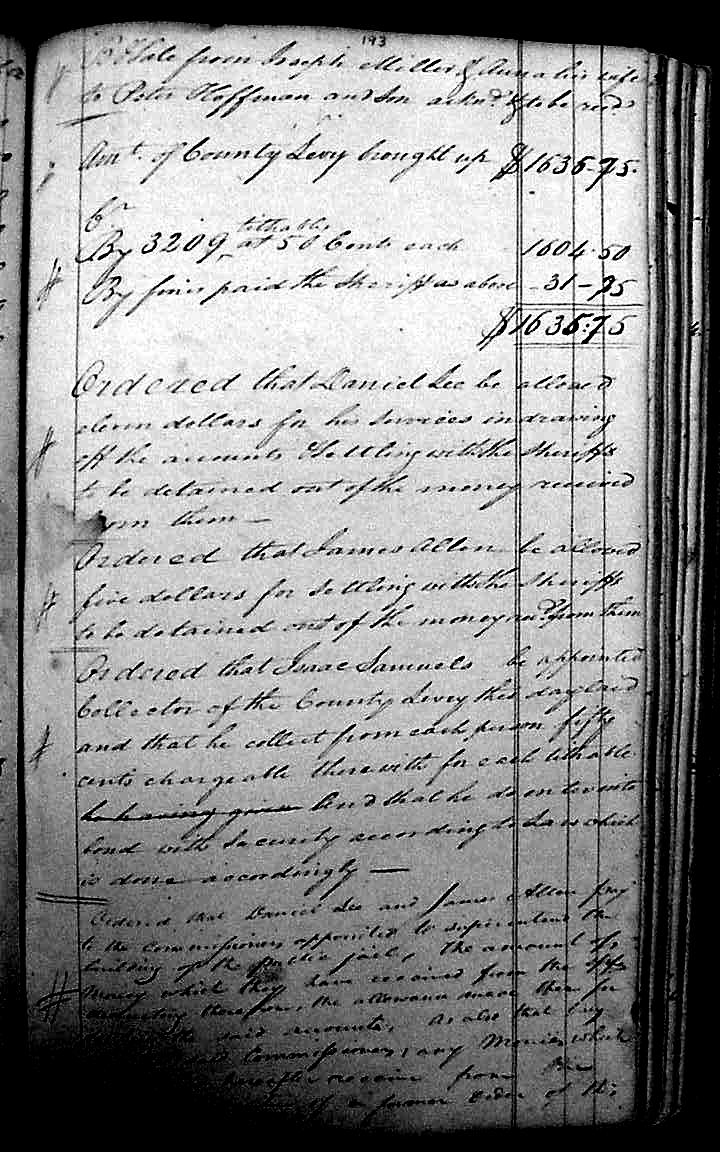 193
B Sale from Joseph Miller & Anna his wife
to Peter Hoffman and Son acknd. & to be recd.
Amt. of County Levy brought up $1636-75.
Cr
tithables
By 3209, at 50 Cents each 1604.50
By fines paid the Sheriff as above - 31-75
$1636:75
Ordered that Daniel Lee be allowed
eleven dollars for his services in drawing
off the accounts & Settling with the Sheriffs
to be detained out of the money received
from them —
Ordered that James Allen be allowed
five dollars for Settling with the Sheriffs
to be detained out of the money recd. from them
Ordered that Isaac Samuels be appointed
Collector of the County Levy this day laid
and that he collect from each person fifty
cents chargeable therewith for each tithable
he having given And that he do enter into
bond with Security according to Law which
is done accordingly —
Ordered that Daniel Lee and James Allen pay
to the commissioners appointed to superintend the
building of the public jail, the amount of
Money which they have received from the
deducting therefrom, the allowance made them for
the said accounts, as also that they
Commissioners, any Monies which
hereafter receive from the
of a former order of this